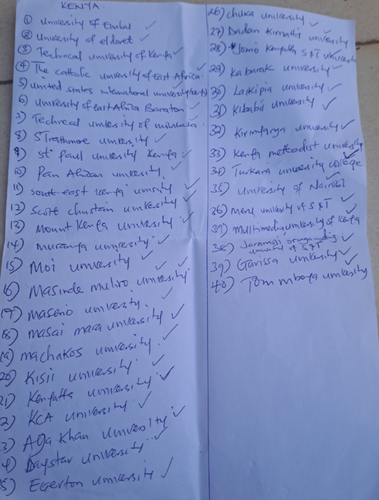 KENYA
① University of Embu ✓
② University of eldoret ✓
③ Technical university of Kenya ✓
④ The catholic university of east Africa
5) united states international university
6) University of east Africa Baraton ✓
7) Technical university of mombasa
8) Strathmore university ✓
9) St. Paul university Kenya ✓
10) Pan African university ✓
11) south-east Kenya university ✓
12) Scott christian university ✓
13) Mount Kenya university ✓
14) muranga university ✓
15) Moi university ✓
16) Masinde muliro university ✓
17) maseno university ✓
18) masai mara university ✓
19) machakos university ✓
20) Kisii university ✓
21) Kenyatta university ✓
2) KCA university ✓
3) Aga Khan university ✓
4) Daystar university ✓
5) Egerton university ✓
26) chuka university ✓
27) Dedan Kimathi university ✓
28) Jomo Kenyatta S&T university
29) kabarak university ✓
30) Laikipia university ✓
31) Kibabii university ✓
32) Kirinyaga university ✓
33) Kenya methodist university
34) Turkana university college
35) University of Nairobi
36) meru university of S&T ✓
37) multimedia university of Kenya
38) Jaramogi oginga odinga
university of S&T
39) Garissa university ✓
40) Tom mboya university